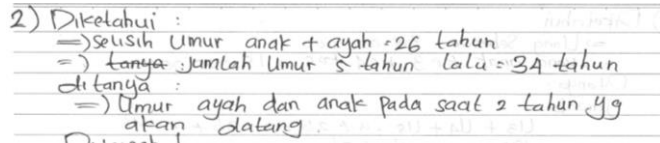 2) Diketahui :
=) Selisih Umur anak + ayah = 26 tahun
=) tanya Jumlah Umur 5 tahun lalu = 34 tahun
ditanya :
=) Umur ayah dan anak pada saat 2 tahun yg
akan datang